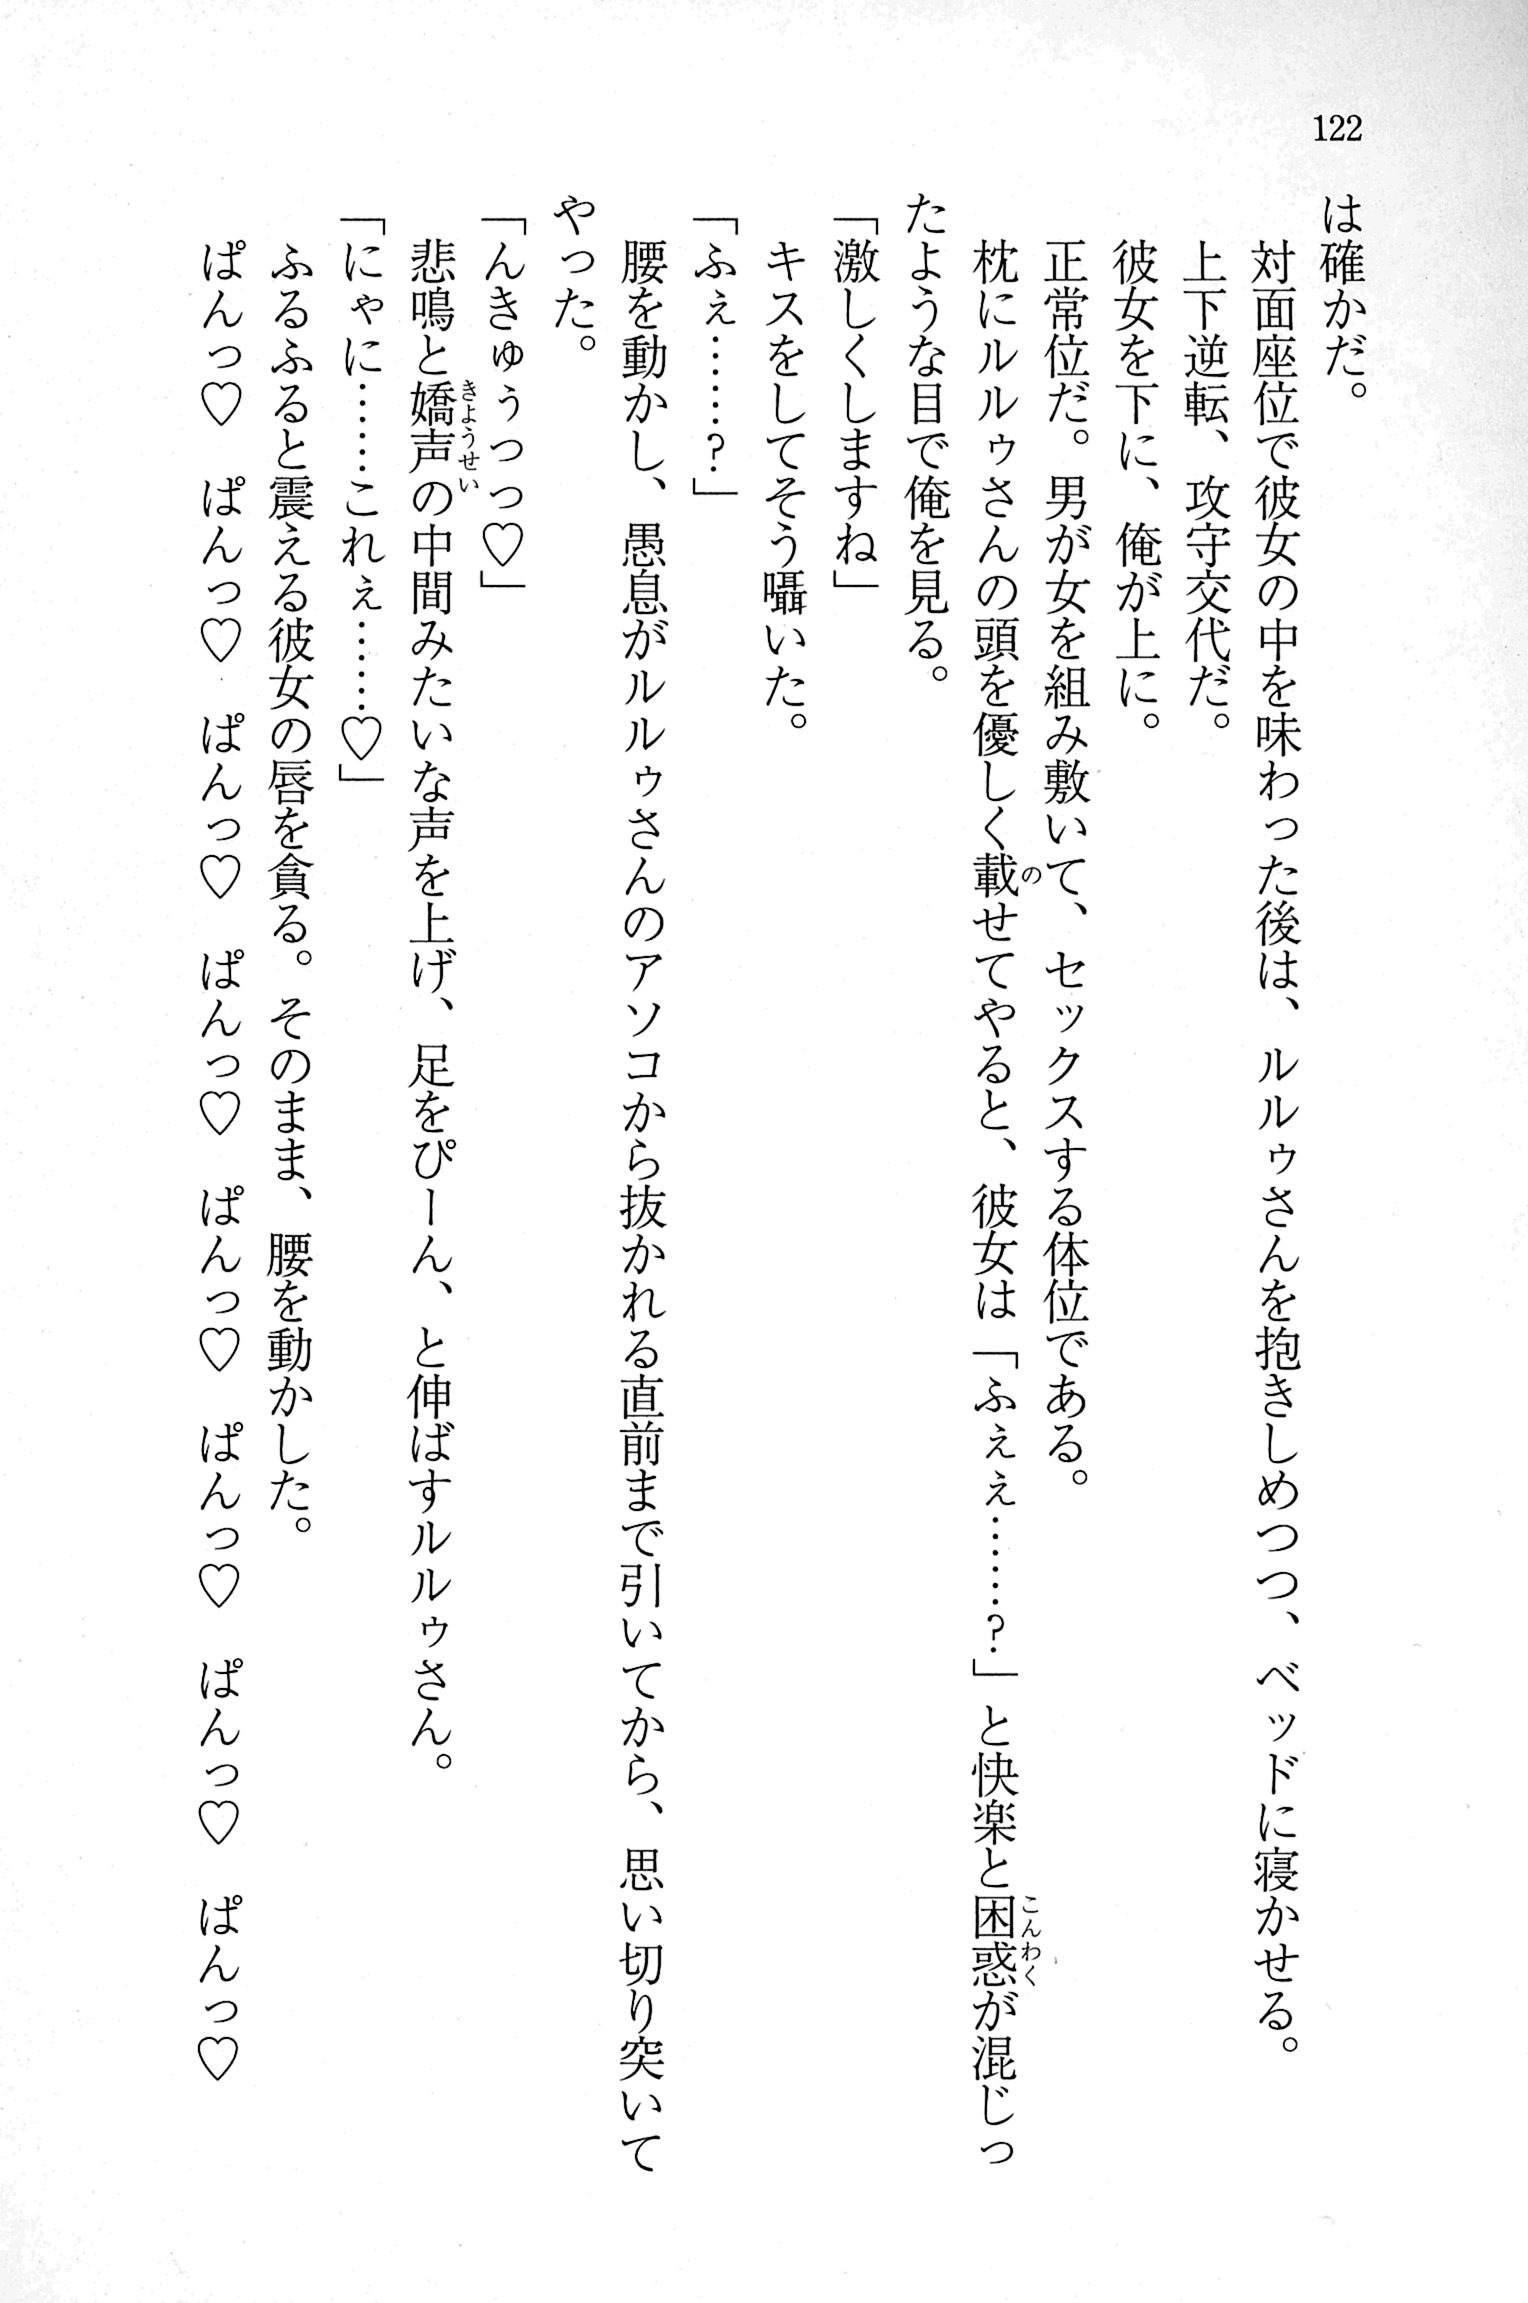 122
は確かだ。
対面座位で彼女の中を味わった後は、ルルゥさんを抱きしめつつ、ベッドに寝かせる。
上下逆転、攻守交代だ。
彼女を下に、俺が上に。
正常位だ。男が女を組み敷いて、セックスする体位である。
枕にルルゥさんの頭を優しく載せてやると、彼女は「ふぇぇ……？」と快楽と困惑が混じっ
たような目で俺を見る。
「激しくしますね」
キスをしてそう囁いた。
「ふぇ……？」
腰を動かし、愚息がルルゥさんのアソコから抜かれる直前まで引いてから、思い切り突いて
やった。
「んきゅぅっっ♡」
悲鳴と嬌声の中間みたいな声を上げ、足をぴーん、と伸ばすルルゥさん。
「にゃに……これぇ……♡」
ふるふると震える彼女の唇を貪る。そのまま、腰を動かした。
ぱんっ♡　ぱんっ♡　ぱんっ♡　ぱんっ♡　ぱんっ♡　ぱんっ♡　ぱんっ♡　ぱんっ♡